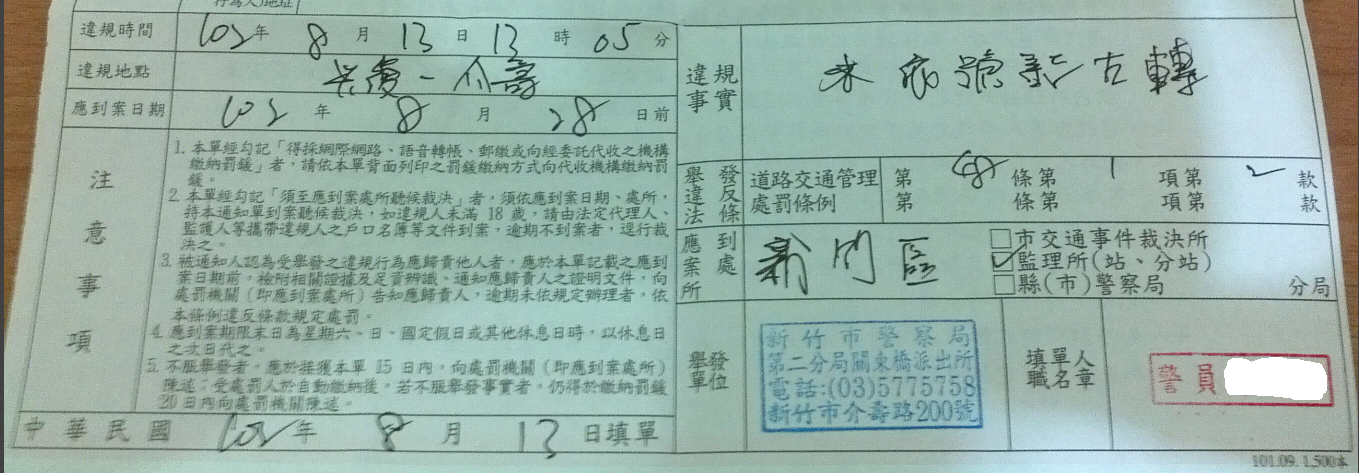 行為人地址
違規時間 102年 8月 13日 13時 05分
違規地點 光復一介壽
應到案日期 102年 8月 28日前
注意事項
1. 本單經勾記「得採網際網路、語音轉帳、郵繳或向經委託代收之機構
繳納罰鍰」者,請依本單背面列印之罰鍰繳納方式向代收機構繳納罰
鍰。
2. 本單經勾記「須至應到案處所聽候裁決」者,須依應到案日期、處所,
持本通知單到案聽候裁決,如違規人未滿 18 歲,請由法定代理人、
監護人等攜帶違規人之戶口名簿等文件到案,逾期不到案者,逕行裁
決之。
3. 被通知人認為受舉發之違規行為應歸責他人者,應於本單記載之應到
案日期前,檢附相關證據及足資辨識、通知應歸責人之證明文件,向
處罰機關(即應到案處所)告知應歸責人,逾期未依規定辦理者,依
本條例違反條款規定處罰。
4. 應到案期限末日為星期六、日、國定假日或其他休息日時,以休息日
之次日代之。
5. 不服舉發者,應於接獲本單 15 日內,向處罰機關(即應到案處所)
陳述;受處罰人於自動繳納後,若不服舉發事實者,仍得於繳納罰鍰
20 日內向處罰機關陳述。
中華民國 102年 8月 13日填單
違規事實 未依號誌右轉
舉發違反法條 道路交通管理處罰條例
第 48 條第 1 項第 2 款
第 條第 項第 款
應到案處所 新竹區
□市交通事件裁決所
☑監理所(站、分站)
□縣(市)警察局 分局
舉發單位
新竹市警察局
第二分局關東橋派出所
電話:(03)5775758
新竹市介壽路200號
填單人職名章
警員
101.09. 1,500本